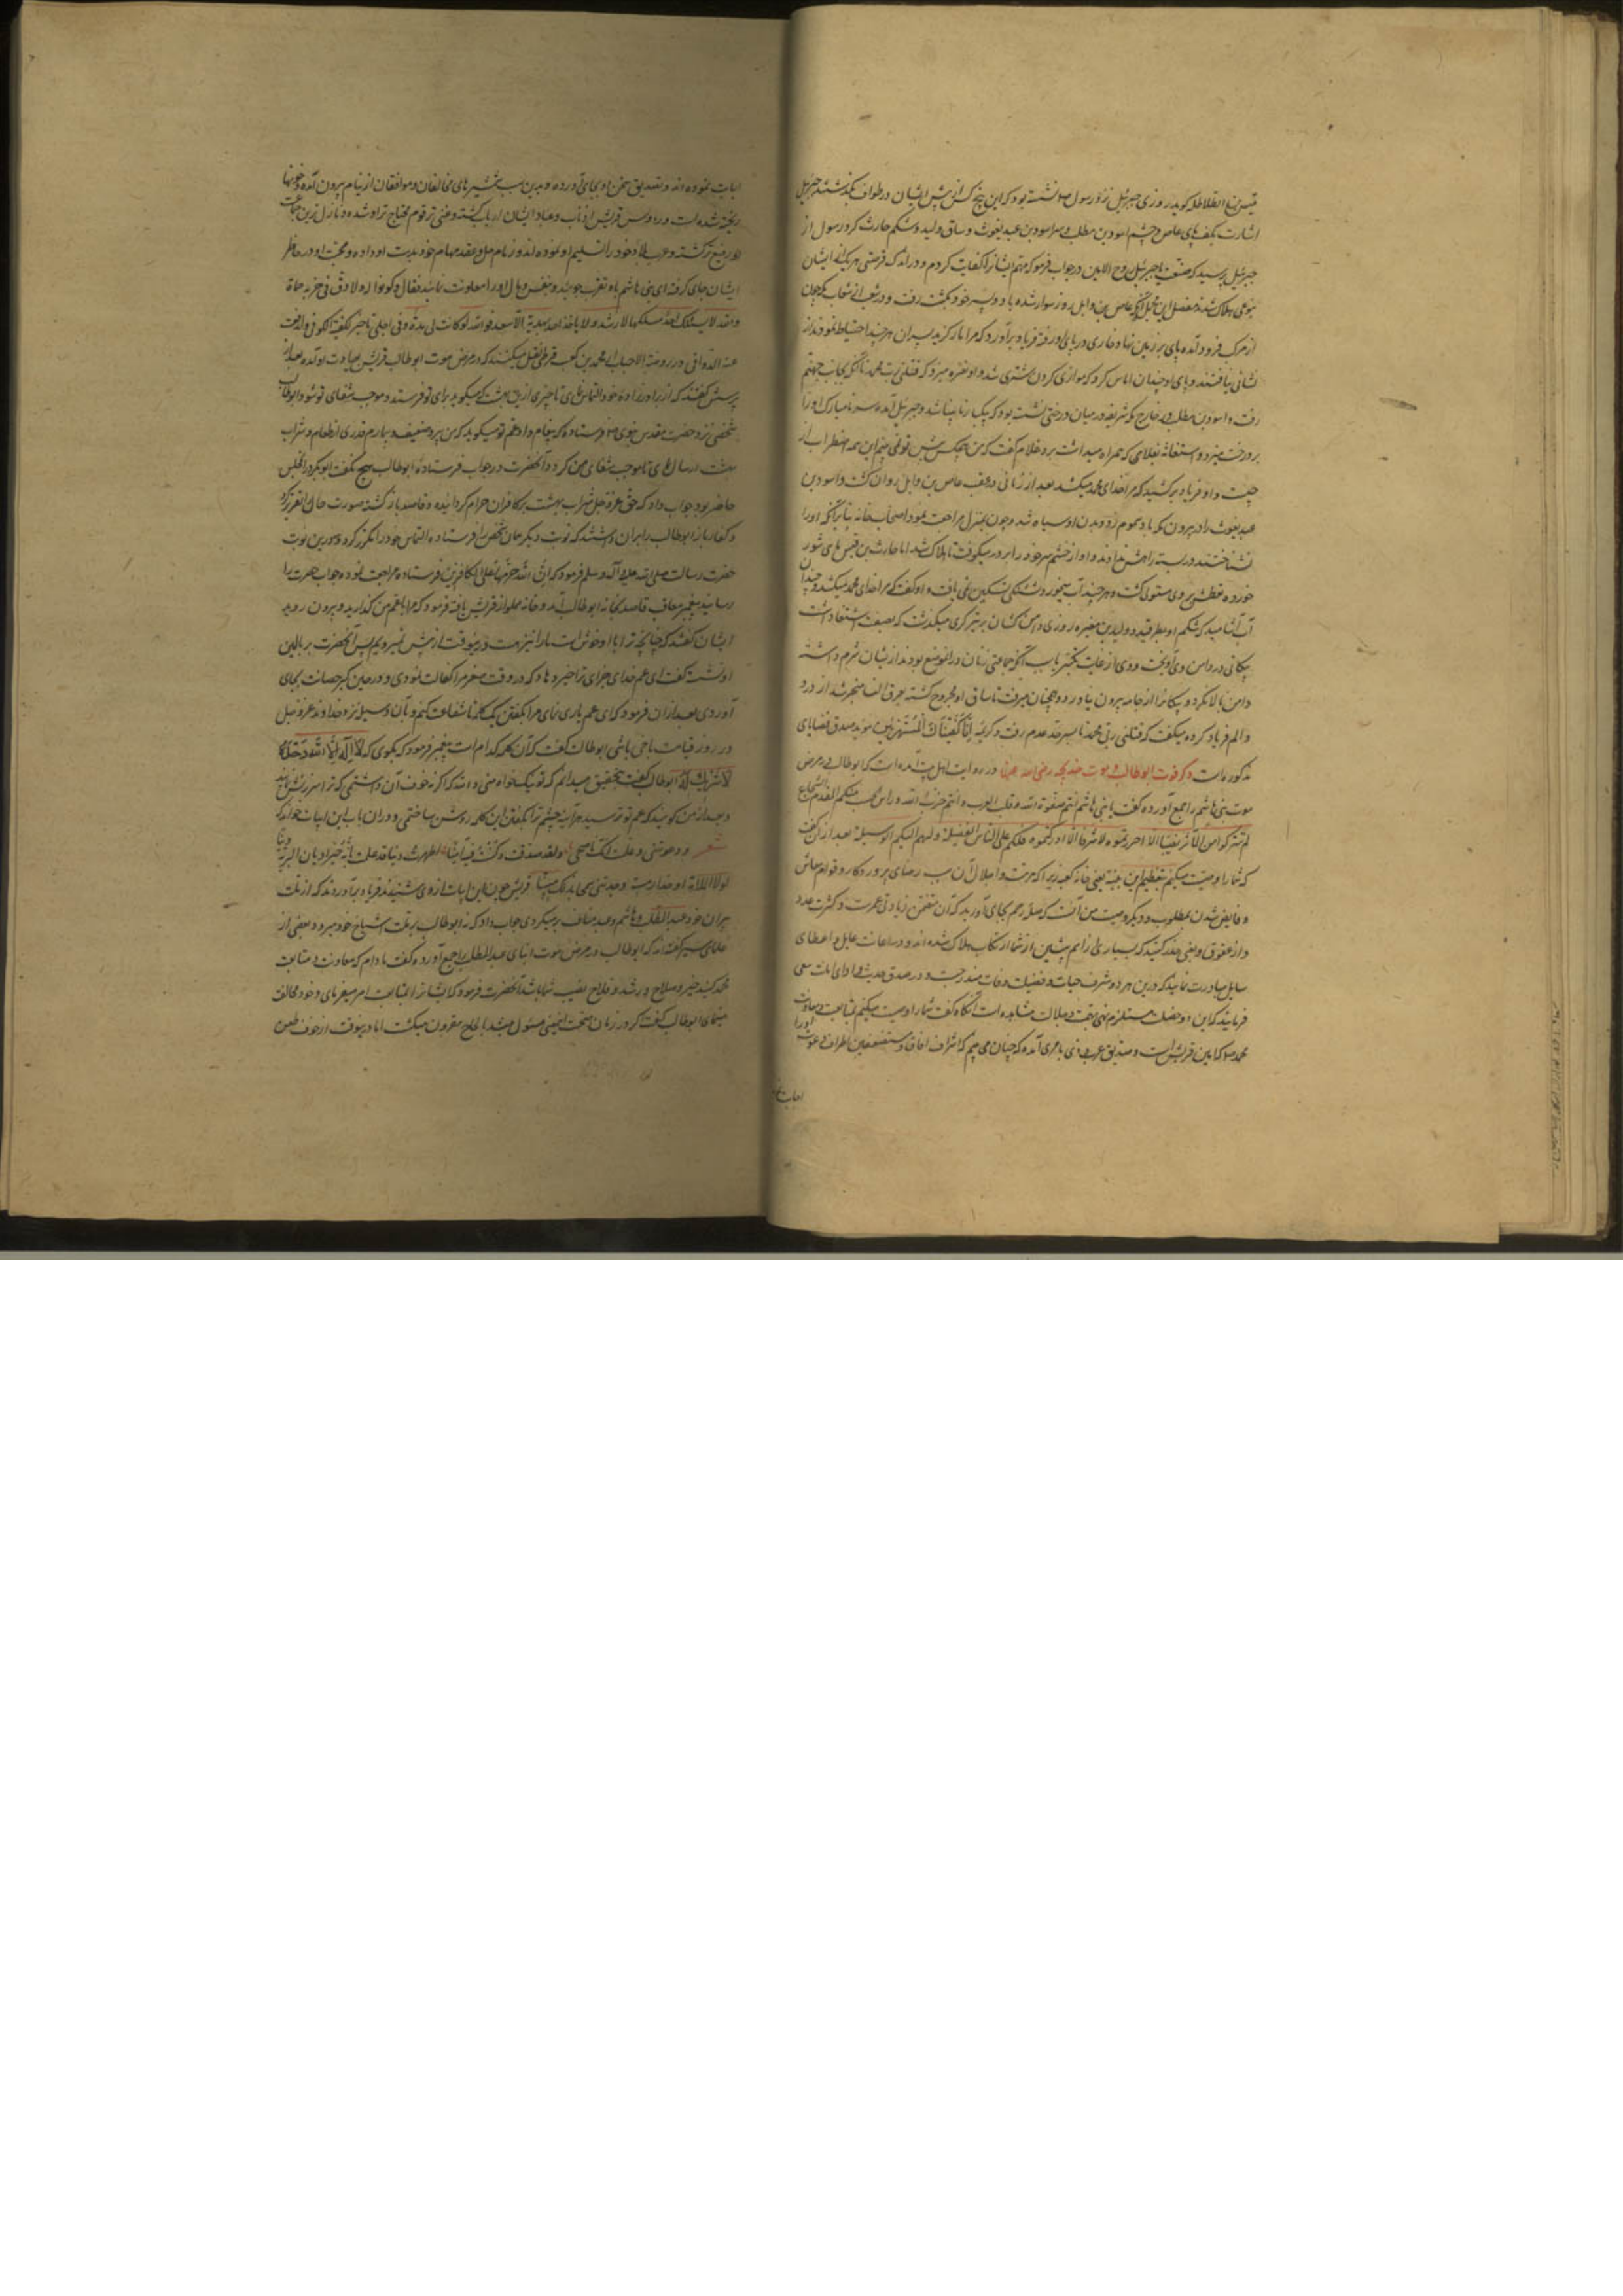 قیس بن الطلاطله کوید روزی جبرئیل نزد رسول نشسته بود که این پنج کس از پیش ایشان در طواف بگذشتند جبرئیل
اشارت بکف پای عاص و چشم اسود بن مطلب و سر اسود بن عبد یغوث و ساق ولید و شکم حارث کرد رسول از
جبرئیل پرسید که یا جبرئیل روح الامین در جواب فرمود که مهم ایشانرا کفایت کردم و در اندک فرصتی هر یک از ایشان
بنوعی هلاک شدند مفصل این مجمل آنکه عاص بن وایل روزی سوار شده با دو پسر خود بکشت رفت و در شعبی از شعاب
از مرکب فرود آمده پای بر زمین نهاد خاری در پای او رفته فریاد برآورد که مرا مار گزید پسران هر چند احتیاط نمودند از
نشانی نیافتند و پای او چندان اماس کرد که موازی گردن شتری شد و او نعره میزد که قتلنی رب محمد تا آنکه بجانب جهنم
رفت و اسود بن مطلب در خارج مکه شریفه در میان درختی نشسته بود که بیکبار نابینا شد و جبرئیل آمده سر نامبارک او را
بر درخت میزد و استغاثه بغلامی که همراه میداشت برد غلام گفت که من هیچکس پیش تو نمی بینم این همه اضطراب از
چیست و او فریاد بر کشید که مرا خدای محمد میکشد بعد از زمانی در عقب عاص بن وایل روان گشت و اسود بن
عبد یغوث را در بیرون مکه باد سموم زد و بدن او سیاه شد و چون بمنزل مراجعت نمود اصحاب خانه بنابر آنکه او را
نشناختند در بسته راهش ندادند و او از خشم سر خود را بر در میکوفت تا هلاک شد اما حارث بن قیس ماهی شور
خورده عطش بر وی مستولی گشت و هر چند آب میخورد تشنگی تسکین نمی یافت و او گفت که مرا خدای محمد میکشد و چندان
آب آشامید که شکم او بطرقید و ولید بن مغیره روزی دامن کشان بر تیرگری میگذشت
پیکانی در دامن وی آویخت و وی از غایت تکبر جماعتی زنان در آن موضع بودند از ایشان شرم داشته
دامن بالا نکرد و پیکانرا از جامه بیرون نیاورد و همچنان میرفت تا ساق او مجروح گشته بعرق النسا منجر شد از درد
و الم فریاد کرده میگفت که قتلنی رب محمد تا بسرحد عدم رفت و کریمه انا کفیناک المستهزئین موید صدق قضایای
مذکوره است ذکر فوت ابو طالب و موت خدیجه رضی الله عنها در روایت اهل آمده است که ابو طالب در مرض
موت بنی هاشم را جمع آورده گفت یا بنی هاشم انتم صفوة الله و قلب العرب و انتم حزب الله
لم تترکوا من المآثر نصیبا الا احرزتموه و لا شرفا الا ادرکتموه فلکم علی الناس الفضیلة و لهم الیکم الوسیلة بعد از آن گفت
که شما را وصیت میکنم بتعظیم این بنیه یعنی خانه کعبه زیرا که حرمت و اجلال آن سبب رضای پروردکار و قوام معاش
و فایض شدن بمطلوب و دیگر وصیت من آنست که صله رحم بجای آورید که آن متضمن زیادتی عمرست و کثرت عدد
و از عقوق و بغی حذر کنید که بسیاری از امم پیشین از شما از ارتکاب هلاک شده اند و در اعانت عایل و اعطای
سایل مبادرت نمائید که درین هر دو شرف حیات و فضیلت وفات مندرجست و در صدق حدیث و ادای امانت سعی
فرمائید که این دو خصلت مستلزم آنگاه گفت شما را وصیت میکنم بمتابعت و معاونت
محمد که امین قریش است و صدیق عرب آمده که چنان می بینم که اشراف آفاق و مستضعفین اطراف دعوت او را
اجابت
اجابت نموده اند و تصدیق سخن او بجای آورده و بدین سبب شمشیرهای مخالفان و موافقان از نیام بیرون آمده و خونها
ریخته شده است و رؤس قریش اذناب و عباد ایشان ارباب گشته و غنی ترین قوم محتاج تر او شده و نازل ترین جماعت
رفیع تر گشته و عرب بلاد خود را تسلیم او نموده اند و زمام حل و عقد مهام خود بدست او داده و محبت او در خاطر
ایشان جای گرفته ای بنی هاشم باو تقرب جوئید و بنفس و مال او را معاونت نمائید فقال و کونوا له ولاة و فی حزبه حماة
و الله لا یسلک احد مسلکها الا رشد و لا یاخذ احد بهدیه الا سعد فوالله لو کانت لی مدة و فی اجلی تاخیر لکفیته الکوافی و لدفعت
عنه الدواهی و در روضة الاحباب از محمد بن کعب قرظی نقل میکنند که در مرض موت ابو طالب قریش بعیادت او آمده بعد از
پرسش گفتند که از برادرزاده خود التماس نمای تا چیزی ازین بهشت که میکوید برای تو فرستد و موجب شفای تو شود ابو طالب
شخصی نزد حضرت مقدس نبوی فرستاده که پیغام داد عم تو میکوید که من پیر و ضعیف و بیمارم قدری از طعام و شراب
بهشت ارسال نمای تا موجب شفای من گردد آنحضرت در جواب فرستاده ابو طالب هیچ نگفت ابوبکر در آن مجلس
حاضر بود جواب داد که حق عز و جل شراب بهشت بر کافران حرام گردانیده و قاصد باز گشته صورت حال تقریر کرد
و کفار باز ابو طالب را بر آن داشتند که نوبت دیگر همان شخص را فرستاده التماس خود را مکرر کرد و درین نوبت
حضرت رسالت صلی الله علیه و آله و سلم فرمود که ان الله حرمهما علی الکافرین فرستاده مراجعت نموده جواب حضرت را
رسانید پیغمبر متعاقب قاصد بخانه ابو طالب آمد و خانه مملو از قریش یافته فرمود که مرا با عم من گذارید و بیرون روید
ایشان گفتند که چنانچه ترا با او خویشی است ما را نیز هست و درین وقت از پیش نمیرویم پس آنحضرت بر بالین
او نشست گفت ای عم خدای جزای ترا خیر دهاد که در وقت صغر مرا کفالت نمودی و در حین کبر حضانت بجای
آوردی بعد از آن فرمود که ای عم یاری نمای مرا بگفتن یک کلمه تا شفاعت کنم و بآن وسیله نزد خداوند عز و جل
در روز قیامت ابو طالب گفت که آن کلمه کدام است پیغمبر فرمود که بکوی که لا اله الا الله وحده
لا شریک له ابو طالب گفت بتحقیق میدانم که تو نیک خواه منی و الله که اگر نه خوف آن داشتمی که ترا سرزنش نمایند
و بعد از من کویند که عم تو ترسید هر آینه چشم ترا بگفتن این کلمه روشن ساختمی و در آن باب این ابیات خواند
شعر و دعوتنی و علمت انک ناصحی و لقد صدقت و کنت فیه امینا اظهرت دینا قد علمت بانه خیر ادیان البریة دینا
لولا الملامة او حذار مسبة وجدتنی سمحا بذاک مبینا قریش چون این ابیات از وی شنیدند فریاد برآوردند که از ملت
پیران خود عبد المطلب و هاشم و عبد مناف بر میگردی جواب داد که نه ابو طالب بر ملت اشیاخ خود میرود و بعضی از
علمای سیر گفته اند که ابو طالب در مرض موت ابنای عبد المطلب را جمع آورده گفت مادام که معاونت و متابعت
محمد کنید خیر و صلاح و رشد و فلاح نصیب شما باشد آنحضرت فرمود که ایشانرا بمتابعت امر میفرمای و خود مخالفت
مینمای ابو طالب گفت که در زمان صحت اینمعنی مسئول میشد بانجاح مقرون میگشت اما درینوقت از خوف طعن